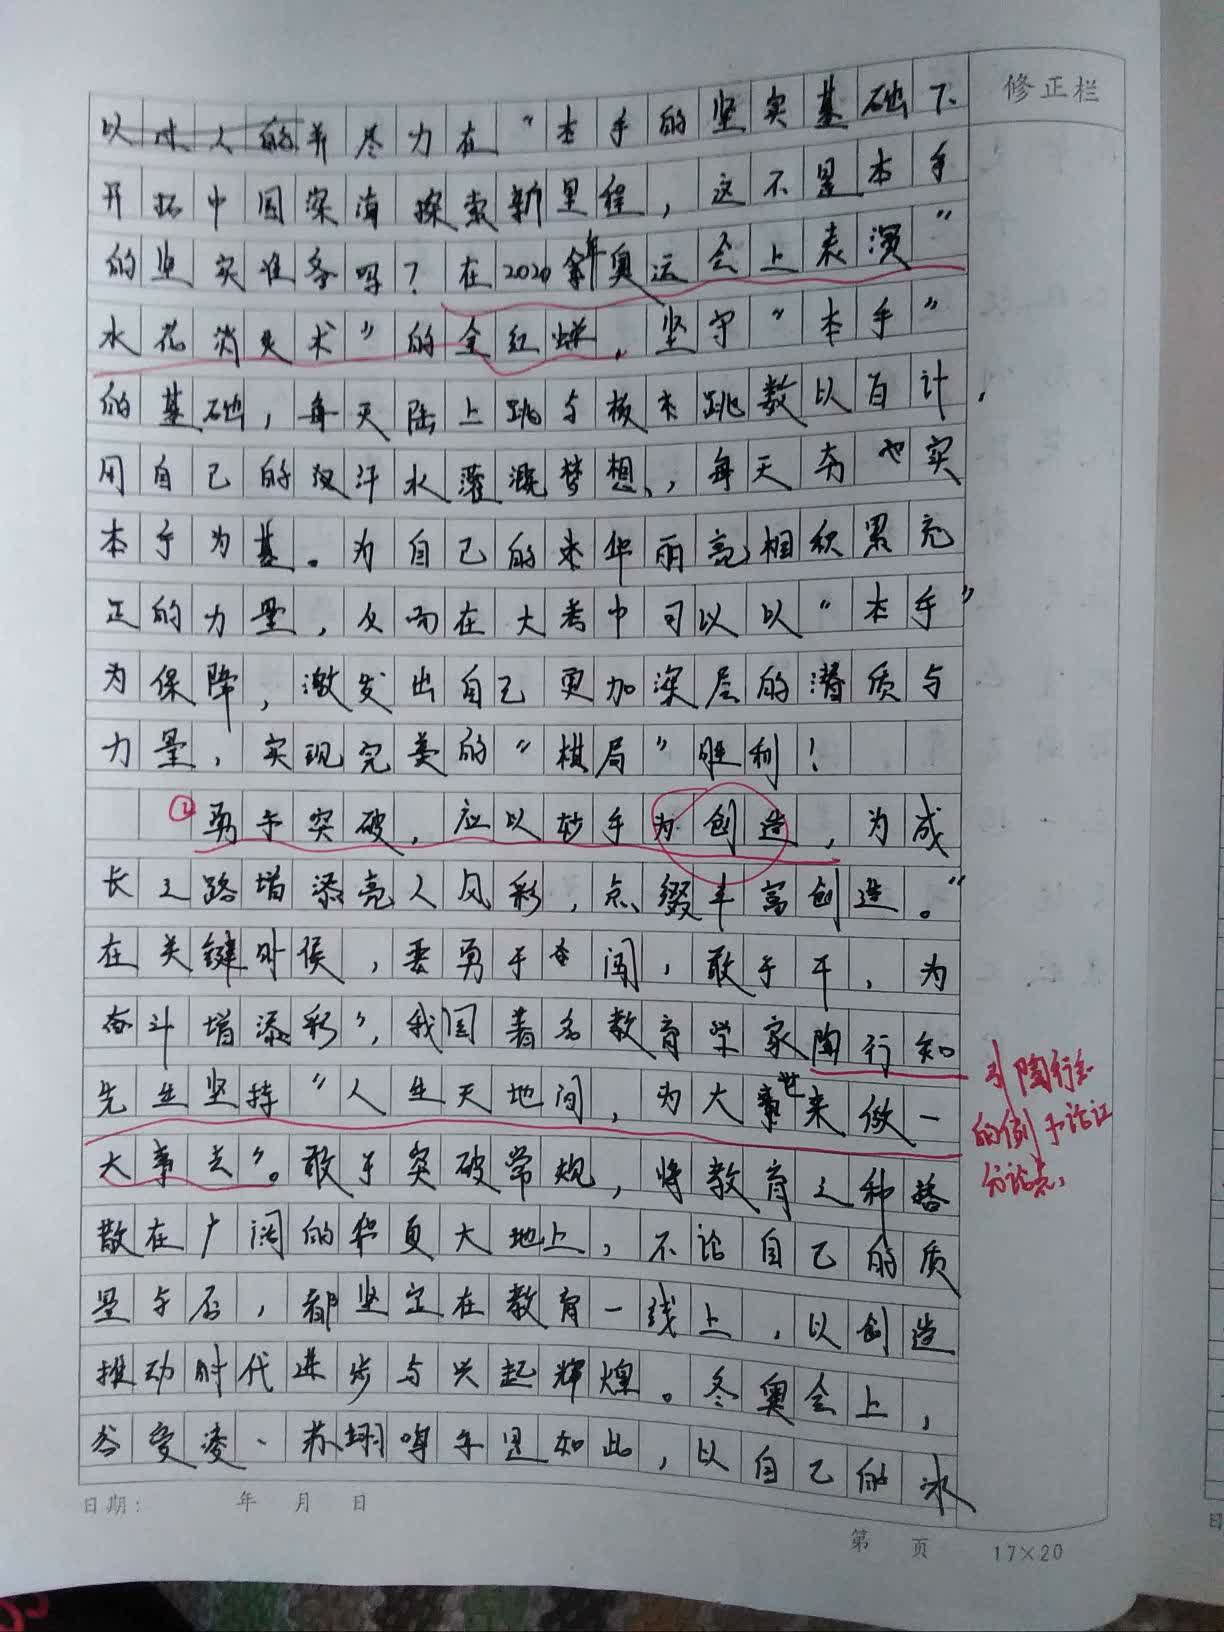 修正栏
以过人的并尽力在“本手的坚实基础下、
开拓中国深海探索新里程，这不是本手
的坚实准备吗？在2020年奥运会上表演“
水花消失术”的全红婵，坚守“本手”
的基础，每天陆上跳与板本跳数以百计，
用自己的汗水灌溉梦想，每天夯实
本手为基。为自己的未华丽亮相积累充
正的力量，从而在大考中可以以“本手”
为保障，激发出自己更加深层的潜质与
力量，实现完美的“棋局”胜利！
②勇于突破，应以妙手为创造，为成
长之路增添亮人风彩，点缀丰富创造。“
在关键时候，要勇于闯，敢于干，为
奋斗增添彩”，我国著名教育学家陶行知
先生坚持“人生天地间，为大世来做一
大事去”。敢于突破常规，将教育之种播
散在广阔的华夏大地上，不论自己的质
量与否，都坚定在教育一线上，以创造
推动时代进步与兴起辉煌。冬奥会上，
谷爱凌、苏翊鸣乎是如此，以自己的冰
引陶行知
的例子论证
分论点，
日期： 年 月 日
第 页 17×20